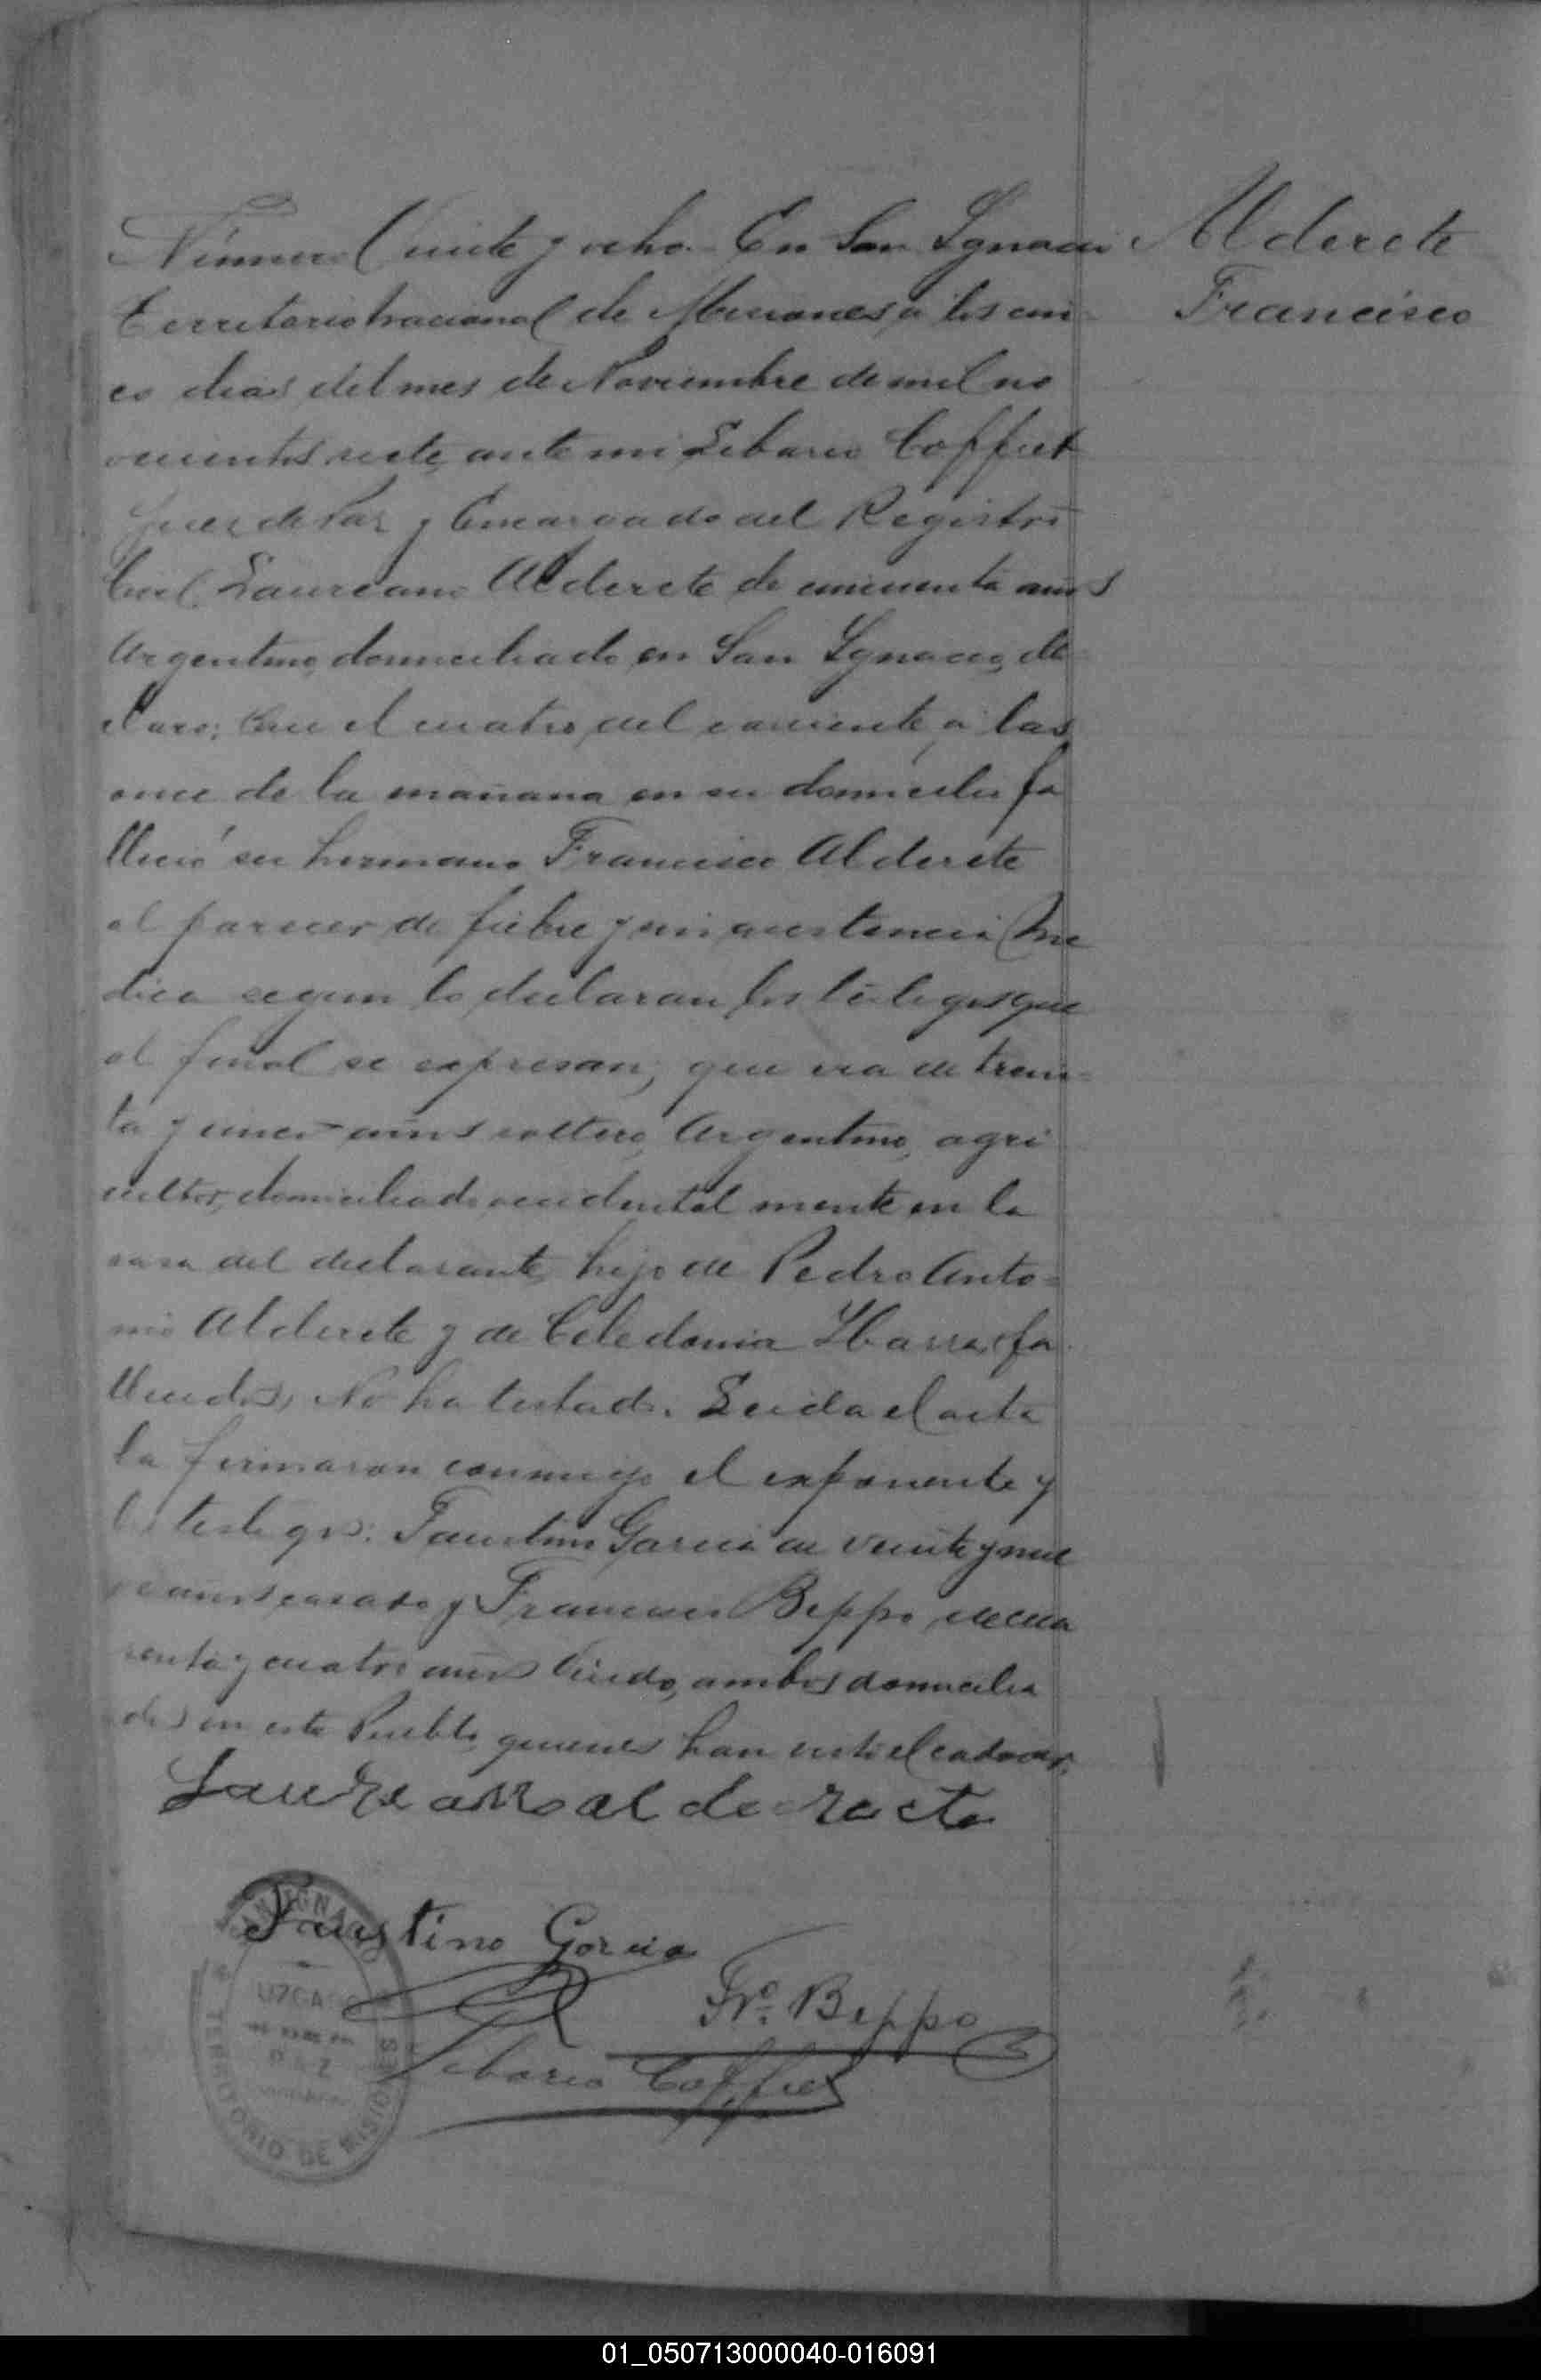 Número Veinte y ocho. En San Ygnacio
Alderete
Francisco
Territorio nacional de Misiones a los cin
co dias del mes de Noviembre de mil no
vecientos siete, ante mi Libario Coffret
Juez de Paz y Encargado del Registro
Civil, Laureano Alderete de cincuenta años
Argentino, domiciliado en San Ygnacio, de
claro; Que el cuatro del corriente a las
once de la mañana en su domicilio fa
lleció su hermano Francisco Alderete
al parecer de fiebre y sin asistencia Me
dica segun lo declaran los testigos que
al final se expresan; que era de trein=
ta y cinco años soltero, Argentino, agri
cultor, domiciliado accidental mente en la
casa del declarante, hijo de Pedro Anto=
nio Alderete y de Celedonia Ybarra, fa
llecidos, No ha testado. Leida el acta
la firmaron conmigo el exponente y
los testigos: Faustino Garcia de veinte y nue
ve años casado y Francisco Beppo, de cua
renta y cuatro años Viudo, ambos domicilia
dos en este Pueblo, quienes han visto el cadaver.
Laureano alderete
Faustino Garcia
Fco. Beppo
Libario Coffret
SAN IGNACIO
JUZGADO
DE
PAZ
TERRITORIO DE MISIONES
01_050713000040-016091